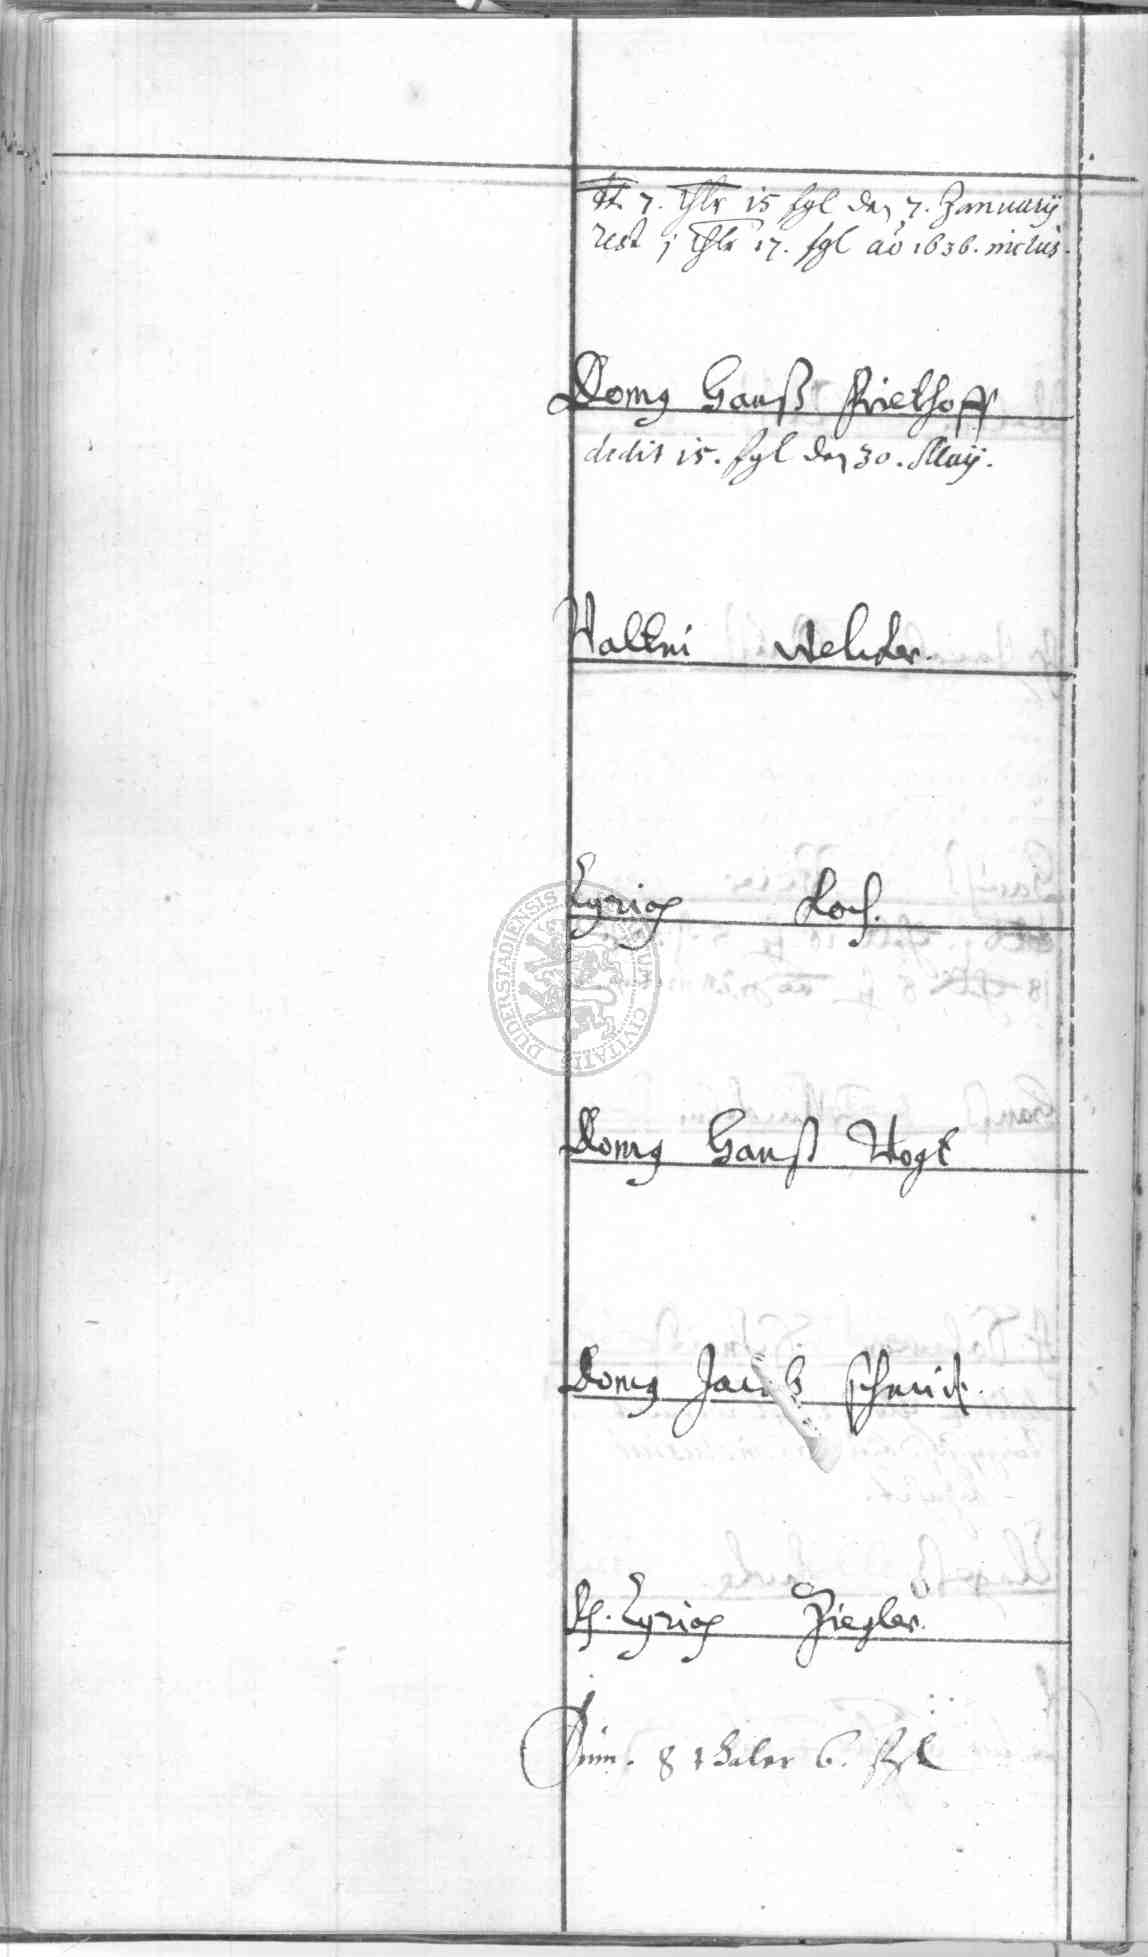 dt. 7. thlr 15 sgl den 7. January
rest j thlr 17. sgl ao 1636. inclus.
Domg Hanß
dedit 15. sgl den 30. Maij.
Valtin
Cyriax Koch.
Domg Hanß Vogt
Domg Jacob
H. Cyriax Ziegler.
Sum. 8 thaler 6. sgl
DUDERSTADIENSIS CIVITATIS